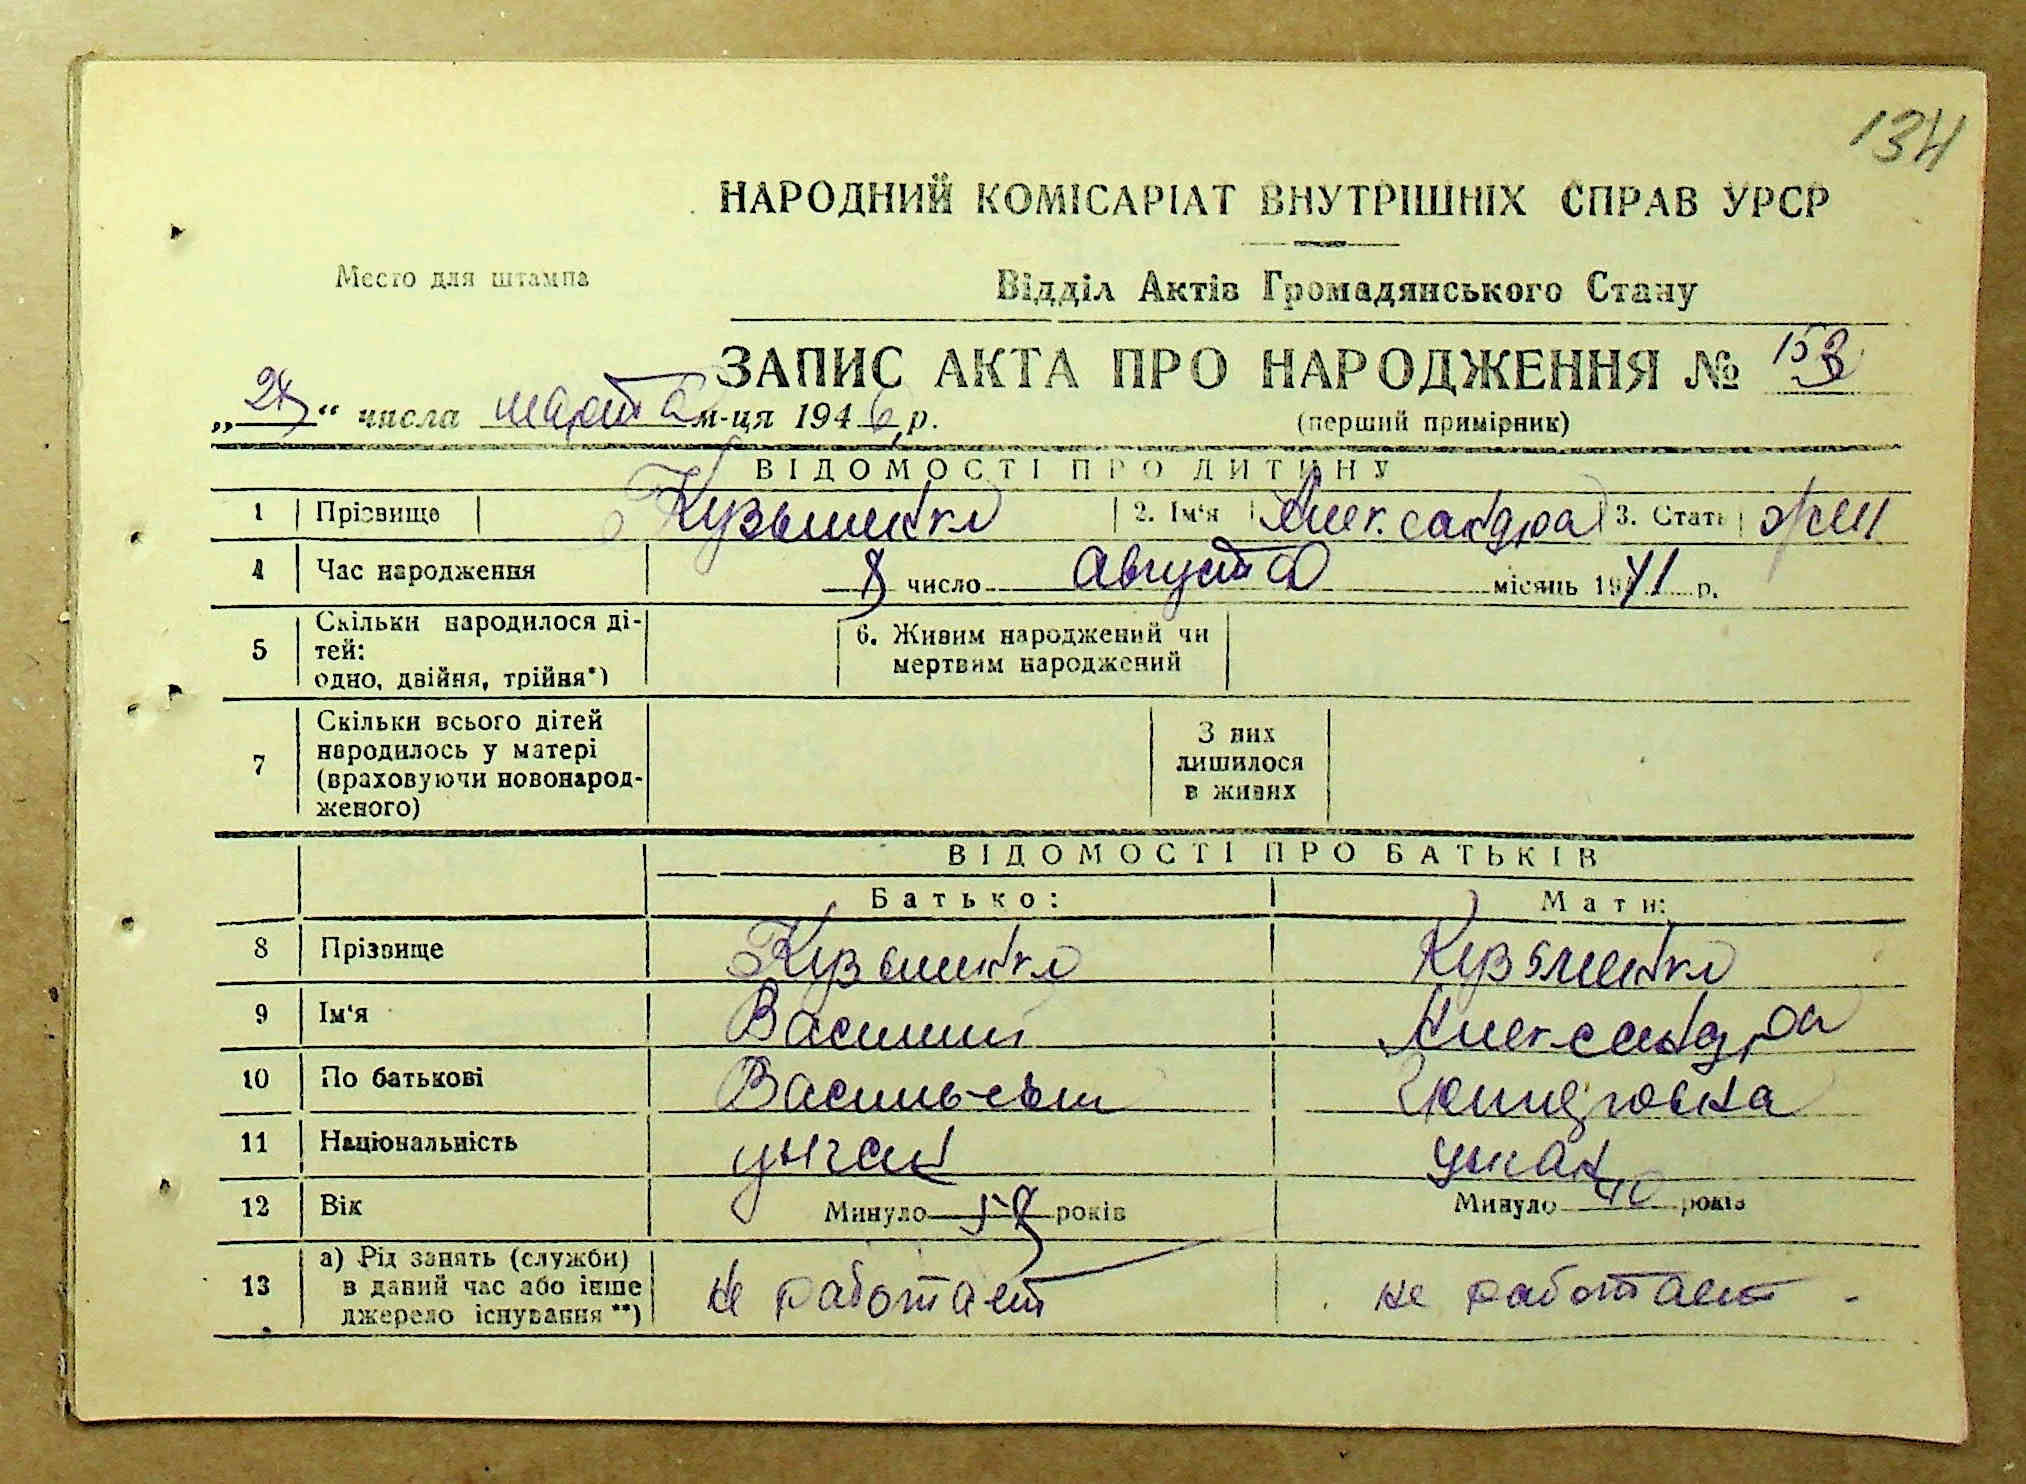 134
НАРОДНИЙ КОМІСАРІАТ ВНУТРІШНІХ СПРАВ УРСР
Место для штампа
Відділ Актів Громадянського Стану
ЗАПИС АКТА ПРО НАРОДЖЕННЯ № 153
„ “ числа марта м-ця 1946 р.
(перший примірник)
ВІДОМОСТІ ПРО ДИТИНУ
1 Прізвище Кузьменко 2. Ім'я Александра 3. Стать жен
4 Час народження 8 число Августа місяць 1941 р.
5 Скільки народилося ді-
тей:
одно, двійня, трійня*)
6. Живим народжений чи
мертвим народжений
7 Скільки всього дітей
народилось у матері
(враховуючи новонарод-
женого)
З них
лишилося
в живих
ВІДОМОСТІ ПРО БАТЬКІВ
Батько: Мати:
8 Прізвище Кузьменко Кузьменко
9 Ім'я Василий Александра
10 По батькові Васильевич
11 Національність
12 Вік Минуло 58 років Минуло 40 років
13 а) Рід занять (служби)
в даний час або інше
джерело існування **)
не работает не работает -